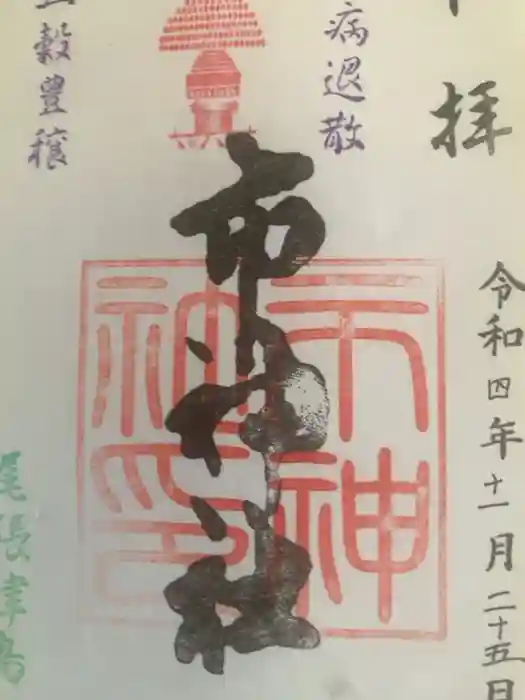 拝
令和四年十一月二十五日
病退散
市神社
市神社印
穀豊穣
尾張津島